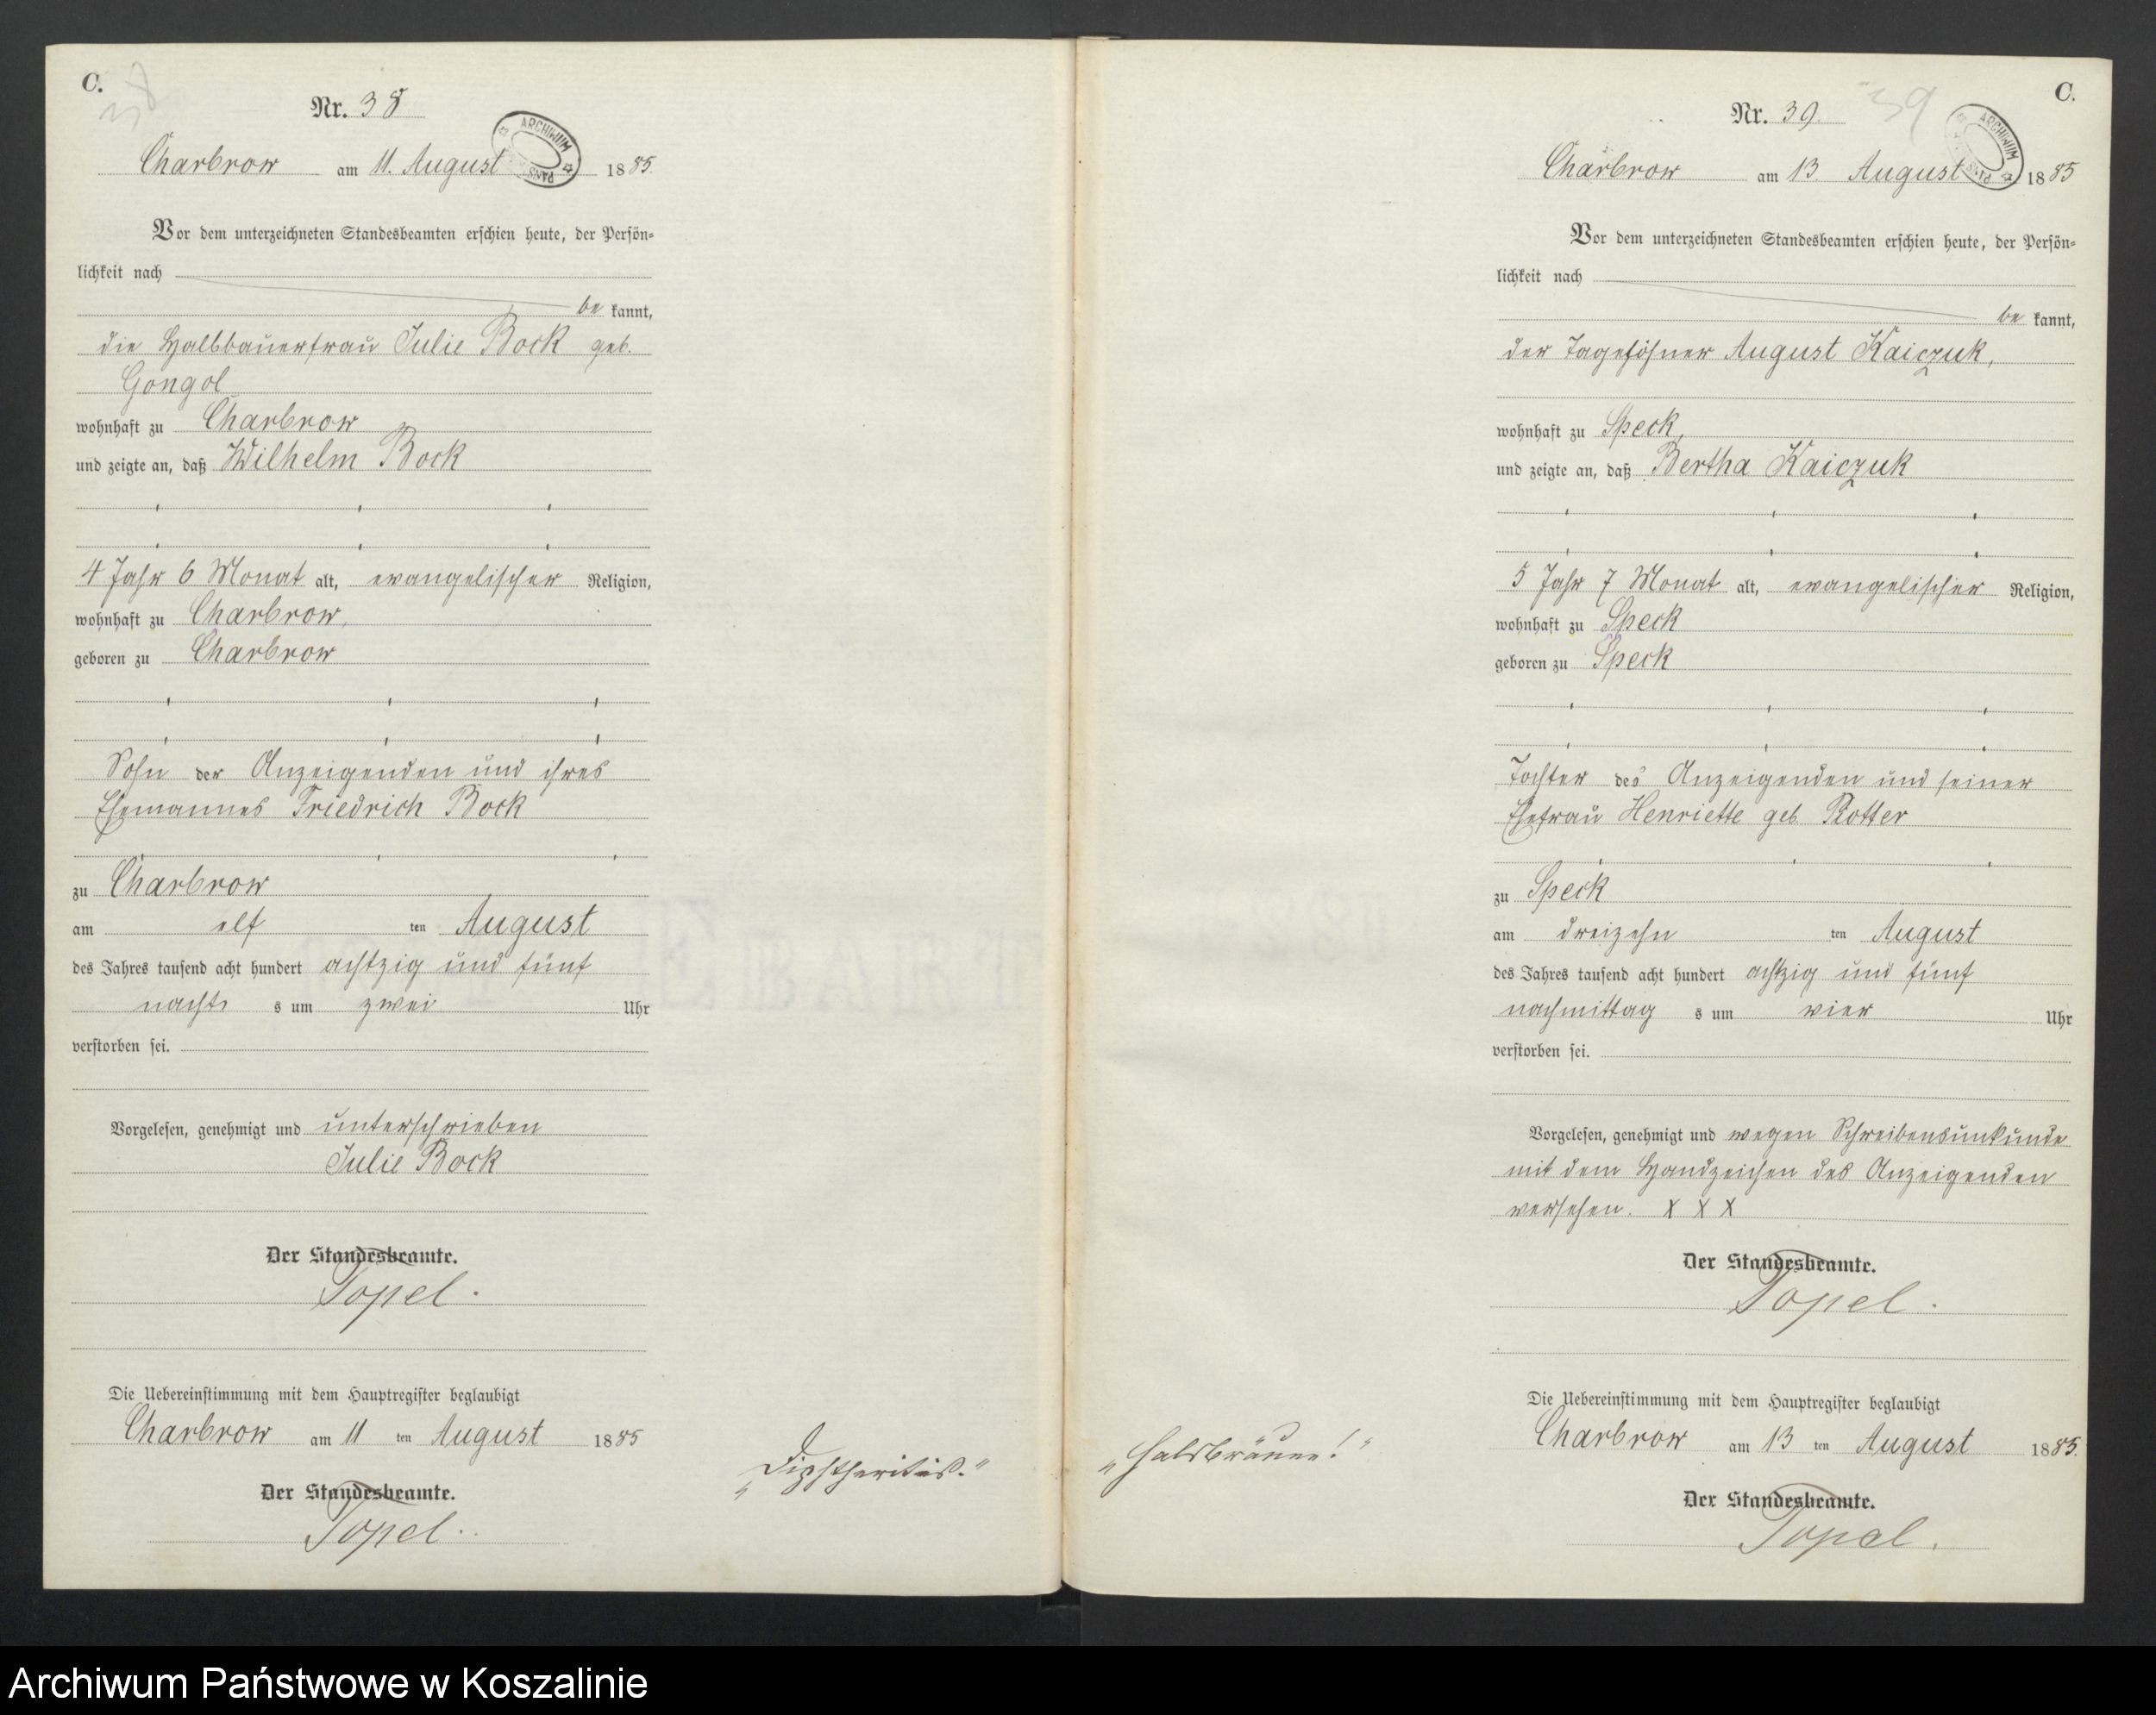 C.
38
Nr. 38
ARCHIWUM
Charbrow am 11. August 1885.
Vor dem unterzeichneten Standesbeamten erschien heute, der Persön-
lichkeit nach
be kannt,
die Halbbauerfrau Julie Bock geb.
Gongol
wohnhaft zu Charbrow
und zeigte an, daß Wilhelm Bock
4 Jahr 6 Monat alt, evangelischer Religion,
wohnhaft zu Charbrow,
geboren zu Charbrow
Sohn der Anzeigenden und ihres
Ehemannes Friedrich Bock
zu Charbrow
am elf ten August
des Jahres tausend acht hundert achtzig und fünf
nachts um zwei Uhr
verstorben sei.
Vorgelesen, genehmigt und unterschrieben
Julie Bock
Der Standesbeamte.
Topel.
Die Uebereinstimmung mit dem Hauptregister beglaubigt
Charbrow am 11 ten August 1885
Der Standesbeamte.
Topel.
„Diphtheritis.“
C.
39
Nr. 39.
ARCHIWUM
Charbrow am 13. August 1885
Vor dem unterzeichneten Standesbeamten erschien heute, der Persön-
lichkeit nach
be kannt,
der Tagelöhner August Kaiczuk,
wohnhaft zu Speck,
und zeigte an, daß Bertha Kaiczuk
5 Jahr 7 Monat alt, evangelischer Religion,
wohnhaft zu Speck
geboren zu Speck
Tochter des Anzeigenden und seiner
Ehefrau Henriette geb. Rotter
zu Speck
am dreizehn ten August
des Jahres tausend acht hundert achtzig und fünf
nachmittag s um vier Uhr
verstorben sei.
Vorgelesen, genehmigt und wegen Schreibensunkunde
mit dem Handzeichen des Anzeigenden
versehen. X X X
Der Standesbeamte.
Topel.
Die Uebereinstimmung mit dem Hauptregister beglaubigt
Charbrow am 13 ten August 1885.
Der Standesbeamte.
Topel.
„Halsbräune!“
Archiwum Państwowe w Koszalinie